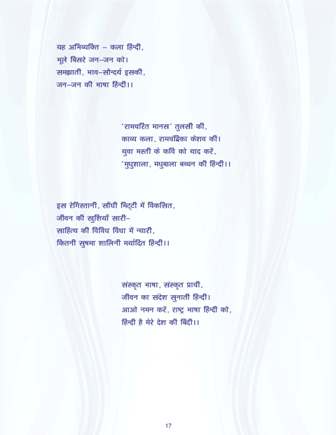 यह अभिव्यक्ति – कला हिन्दी,
भूले बिसरे जन-जन को।
समझाती, भाव-सौन्दर्य इसकी,
जन-जन की भाषा हिन्दी।।
'रामचरित मानस' तुलसी की,
काव्य कला, रामचंद्रिका केशव की।
युवा मस्ती के कवि को याद करें,
'मुधुशाला, मधुबाला बच्चन की हिन्दी।।
इस रेगिस्तानी, सौंधी मिट्टी में विकसित,
जीवन की खुशियाँ सारी–
साहित्य की विविध विधा में न्यारी,
कितनी सुषमा शालिनी मर्यादित हिन्दी।।
संस्कृत भाषा, संस्कृत प्राची,
जीवन का संदेश सुनाती हिन्दी।
आओ नमन करें, राष्ट्र भाषा हिन्दी को,
हिन्दी है मेरे देश की बिंदी।।
17